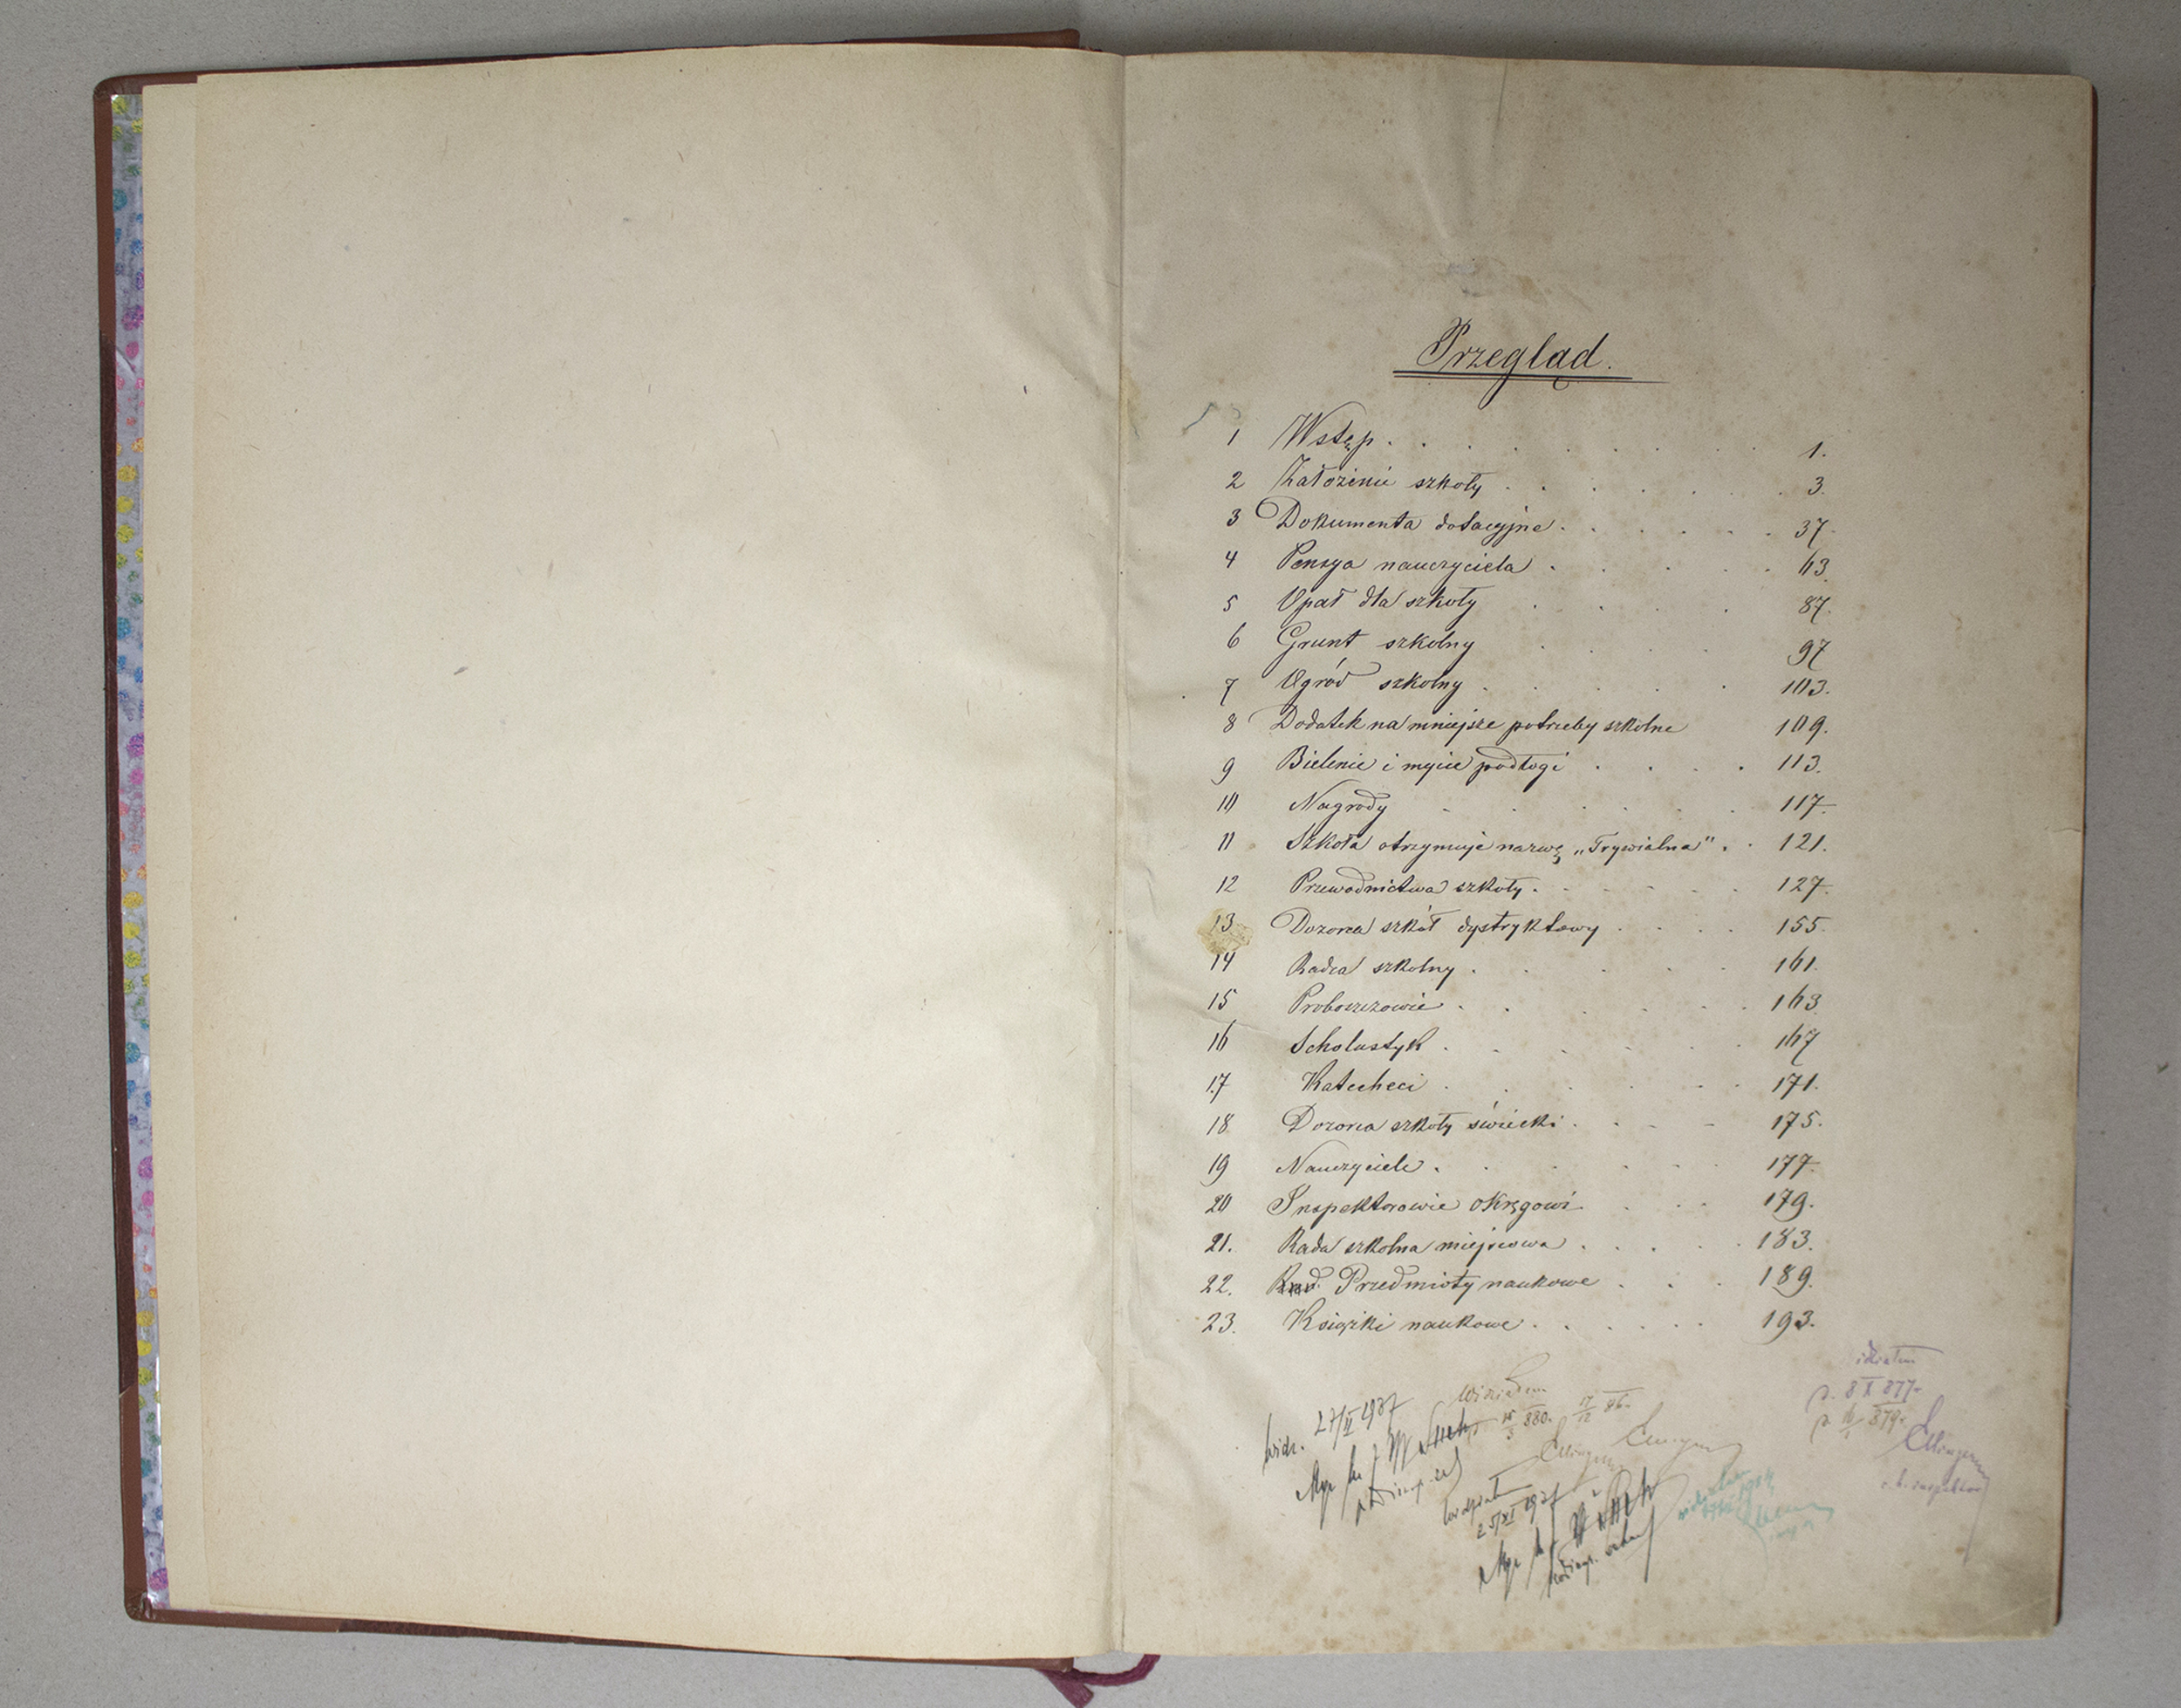 Przegląd.
1 Wstęp . . . . . . . . 1.
2 Założenie szkoły . . . . . . 3.
3 Dokumenta dotacyjne . . . . . 37.
4 Pensya nauczyciela . . . . . 63.
5 Opał dla szkoły . . . . 87.
6 Grunt szkolny . . . . 97
7 Ogród szkolny . . . . . 103.
8 Dodatek na mniejsze potrzeby szkolne 109.
9 Bielenie i mycie podłogi . . . . 113.
10 Nagrody . . . . . . 117.
11 Szkoła otrzymuje nazwę „Trywialna" . . 121.
12 Przewodnictwa szkoły . . . . . . 127.
13 Dozorca szkół dystryktowy . . . . 155.
14 Radca szkolny . . . . . 161.
15 Proboszczowie . . . . . 163.
16 Scholastyk . . . . . . 167
17 Katecheci . . . . . . 171.
18 Dozorca szkoły świecki . . . . 175.
19 Nauczyciele . . . . . . 177.
20 Inspektorowie okręgowi . . . . 179.
21. Rada szkolna miejscowa . . . . . 183.
22. Przedmioty naukowe . . . 189.
23. Książki naukowe . . . . . . 193.
Widziałem
27/V 1937
25/XI 1937